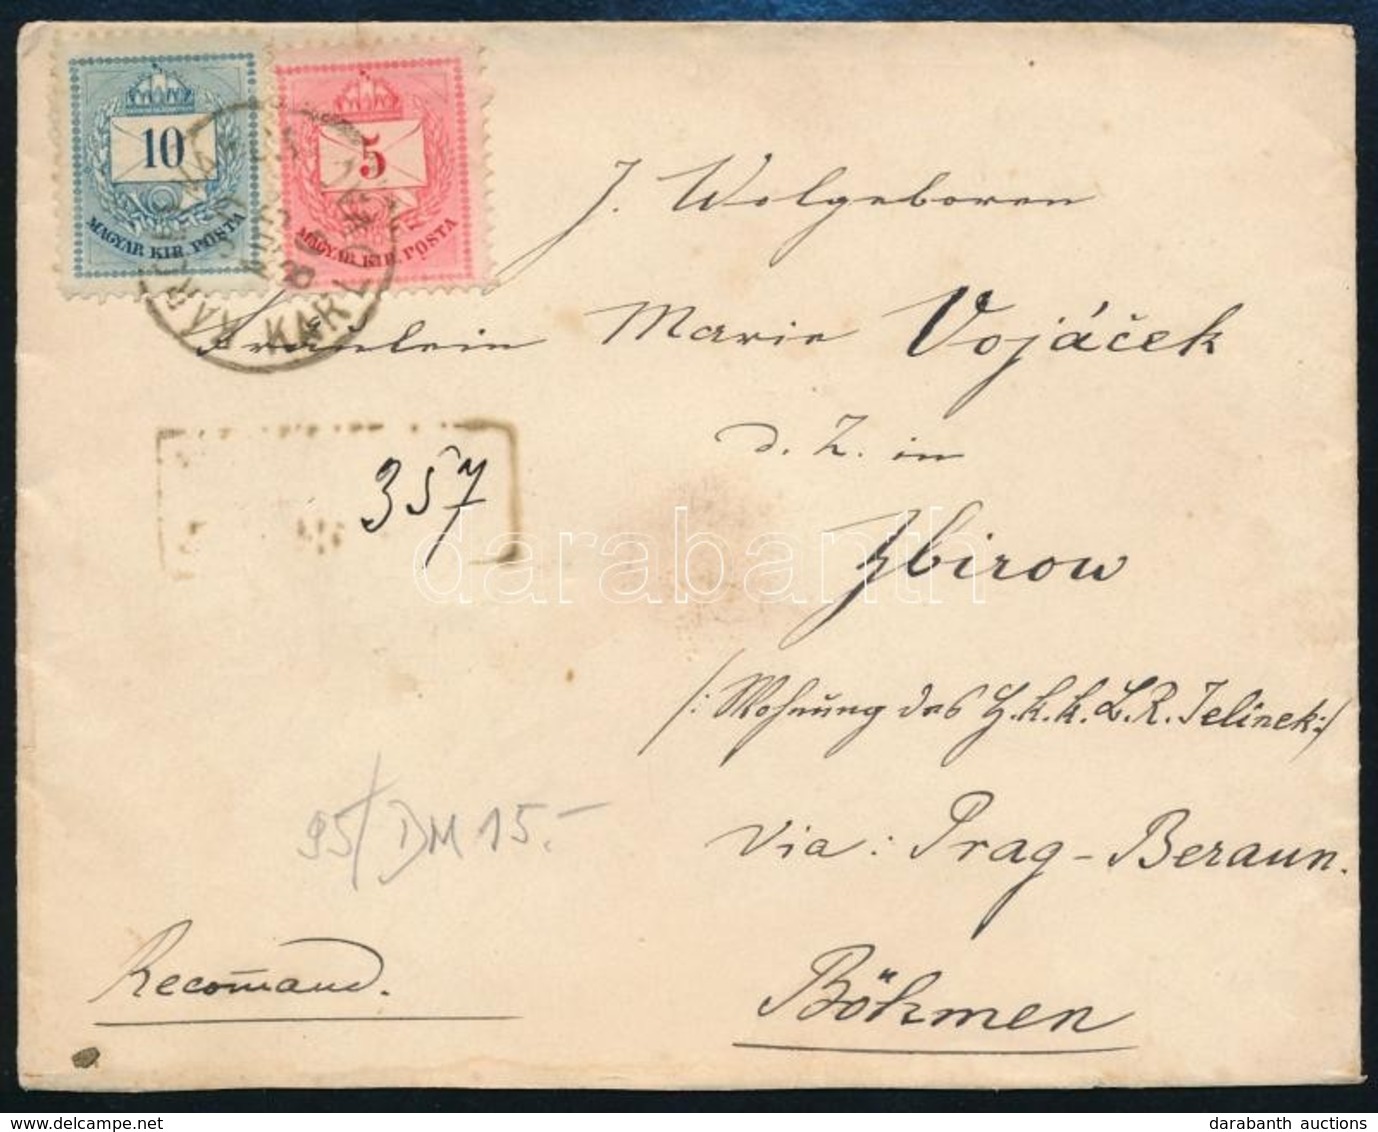 10
MAGYAR KIR. POSTA
5
MAGYAR KIR. POSTA
J. Wolgeboren
Fräulein Marie Vojáček
d. Z. in
357
Zbirow
/: Wohnung des H. k. k. L. R. Jelinek :/
95/DM 15.-
Via: Prag - Beraun.
Recom̄and.
Böhmen
darabanth
darabanth auctions